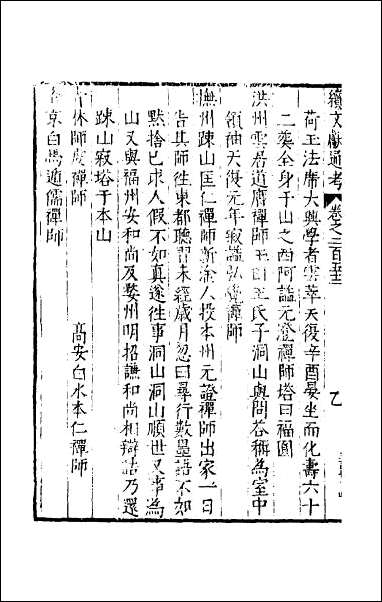 續文獻通考 卷之二百五十二
荷玉法席大興學者雲萃天復辛酉晏坐而化壽六十
二葬全身于山之西阿謚元澄禪師塔曰福圓
洪州雲居道膺禪師玉田王氏子洞山與問荅稱為室中
領袖天復元年寂謚弘覺禪師
撫州踈山匡仁禪師新淦人投本州元證禪師出家一日
告其師往東都聽習未經歲月忽曰尋行數墨語不如
默捨己求人假不如真遂往事洞山洞山順世又事為
山又與福州安和尚及婺州明招謙和尚相辯詰乃還
踈山寂塔于本山
休師虔禪師 高安白水本仁禪師
京白馬遁儒禪師